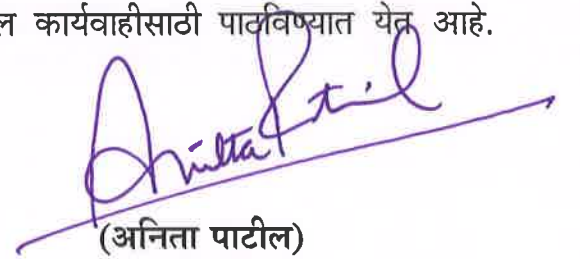 ल कार्यवाहीसाठी पाठविण्यात येत आहे.
Anita Patil
(अनिता पाटील)